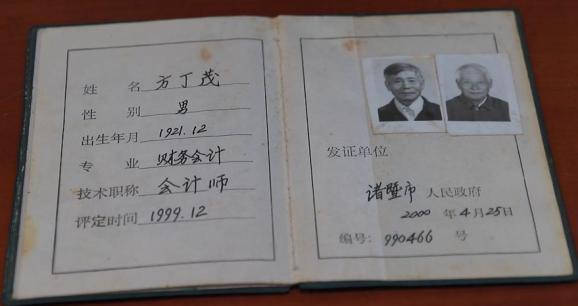 姓 名 方丁茂
性 别 男
出生年月 1921.12
专 业 财务会计
技术职称 会计师
评定时间 1999.12
发证单位
诸暨市 人民政府
2000 年 4 月 25 日
编号: 990466 号